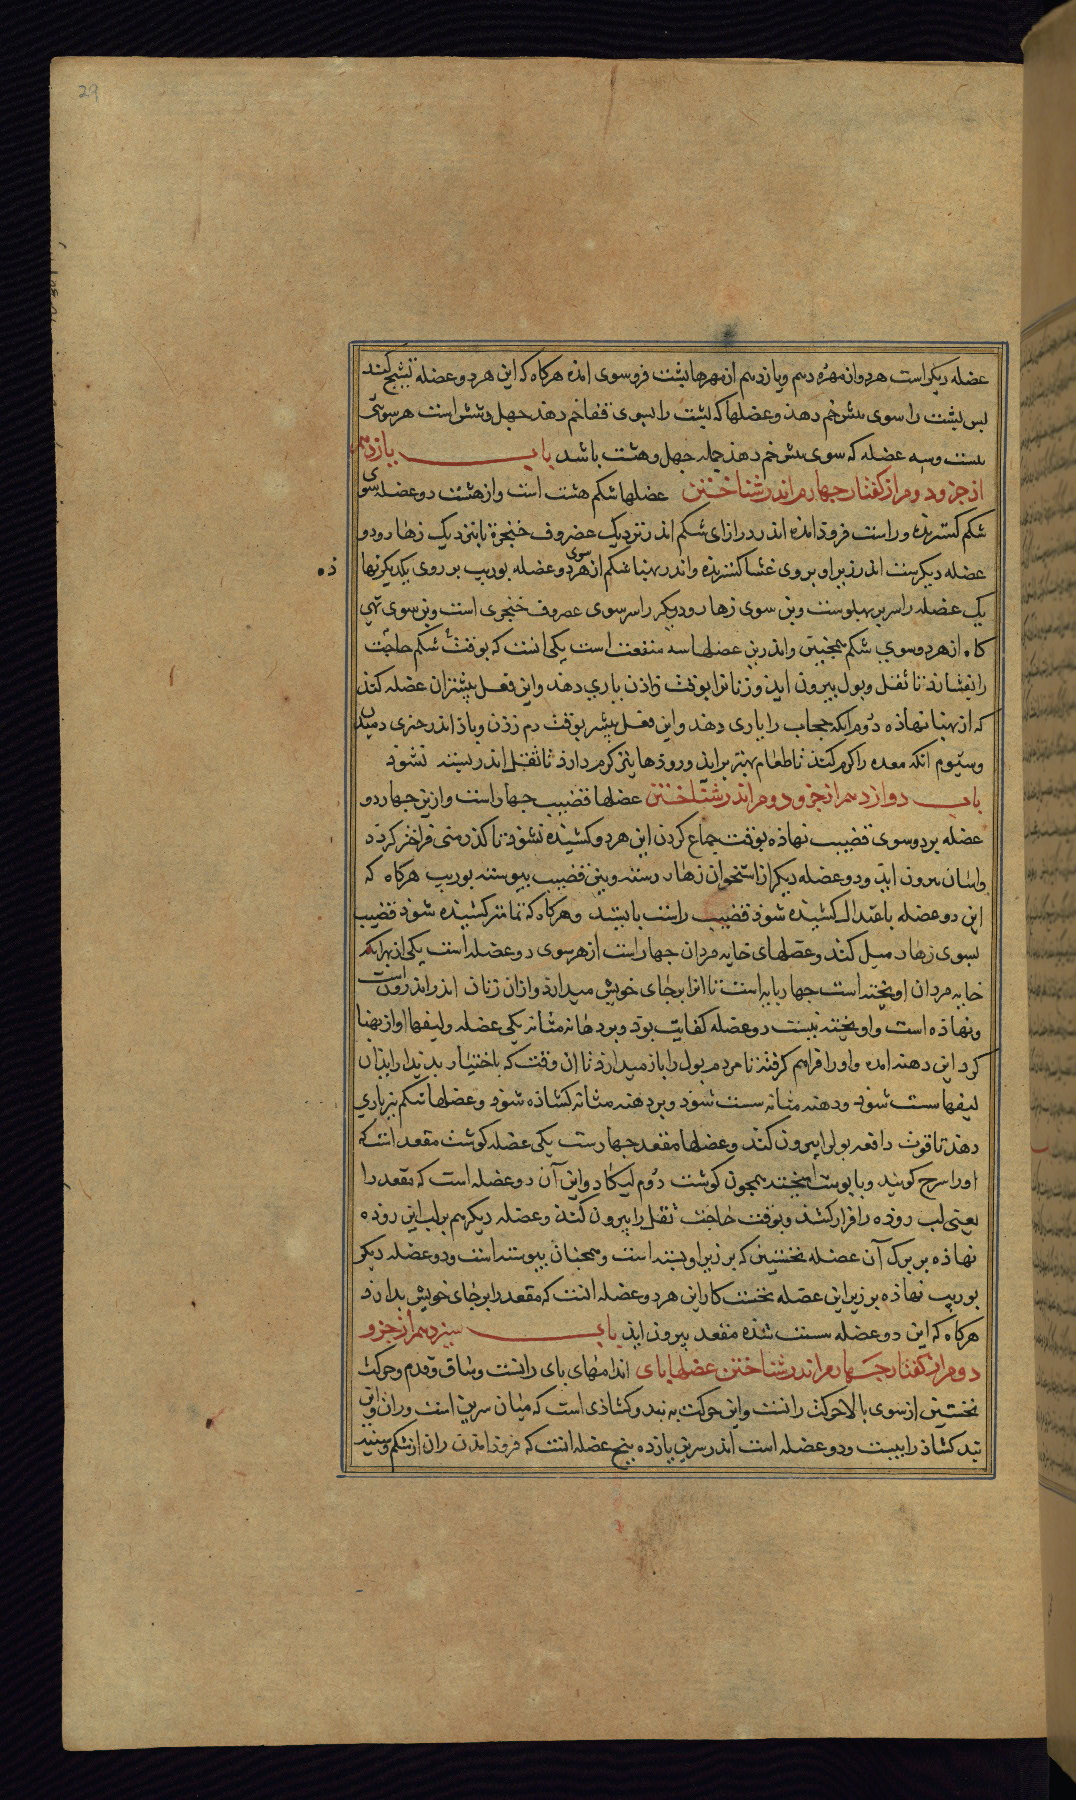 29
عضله دیکر است هر دو از مهره دهم و یازدهم از مهرهاء بشت فرو سوی امذه هرکاه که این هر دو عضله تشنج کند
بس بشت را سوی بیش خم دهذ و عضلها که بشت را بسوی قفا خم دهذ جهل و شش است هر سوئی
بیست و سه عضله که سوی بیش خم دهذ جمله جهل و هشت باشد باب یازدهم
از جزو دوم از کفتار جهارم اندر شناختن عضلها شکم هشت است و از هشت دو عضله سوی
شکم کسترذه و راست فروذ امذه اندر درازای شکم از نزدیک غضروف خنجره تا بنزدیک زهار و دو
عضله دیکرست اندر زیر او بروی غشا کسترذه و اندر بهنا شکم از هر دو سوی دو عضله بوریب بر روی یکدیکر نهاذه
یک عضله را سر بر بهلوست و بن سوی زهار و دیکر را سر سوی غضروف خنجری است و بن سوی تهی
کاه از هر دو سوی شکم همجنین و اندرین عضلها سه منفعت است یکی انست که بوقت شکم حاجت
را بیفشاند تا ثفل و بول بیرون ایذ و زنانرا بوقت زاذن یاری دهد و این فعل بیشتر ان عضله کند
که از بهنا نهاذه دوم انکه حجاب را یاری دهد و این فعل بیشتر بوقت دم زذن و باذ اندر جیزی دمیدن
و سیوم انکه معده را کرم کند تا طعام بهتر براید و روذها نیز کرم دارذ تا ثفل اندر بسته نشوذ
باب دوازدهم از جزو دوم اندر شناختن عضلها قضیب جهار است و ازین جهار دو
عضله بر دو سوی قضیب نهاذه بوقت جماع کردن این هر دو کشیذه شوذ تا کذر منی فراختر کردد
و اسان بیرون ایذ و دو عضله دیکر از استخوان زهار رسته و ببن قضیب بیوسته بوریب هرکاه که
این دو عضله باعتدال کشیذه شوذ قضیب راست بایستد و هرکاه که تمامتر کشیذه شوذ قضیب
بسوی زهار میل کند و عضلهای خایه مردان جهار است از هر سوی دو عضله است یکی از بهر انکه
خایه مردان اویخته است جهار بایه است تا انرا بر جای خویش میدارذ و ازان زنان اندر اندرون است
و نهاذه است و اویخته نیست دو عضله کفایت بوذ و بر دهانه مثانه یکی عضله و لیفهاء او از بهنا
کرد این دهنه امده و او را فراهم کرفته تا مردم بول را باز میدارذ تا ان وقت که باختیار بدید ارذ انذان
لیفها سست شود و دهنه مثانه سست شود و بر دهنه مثانه کشاذه شوذ و عضلها شکم نیز یاری
دهذ تا قوت دافعه بول را بیرون کند و عضلها مقعد جهارست یکی عضله کوشت مقعد است که
او را سرج کویند و با بوست امیخته همجون کوشت دوم لبکاذ و این آن دو عضله است که مقعد را
یعنی لب روذه را فراز کشذ و بوقت حاجت ثفل را بیرون کند و عضله دیکر هم بر لب این روذه
نهاذه بر برک آن عضله نخستین که بر زیر او بسته است و همجنان بیوسته است و دو عضله دیکر
بوریب نهاذه بر زیر این عضله نخست کار این هر دو عضله انست که مقعد را بر جای خویش بدارذ
هرکاه که این دو عضله سست شذه مقعد بیرون ایذ باب سیزدهم از جزو
دوم از کفتار جهارم اندر شناختن عضلها بای اندامهای بای رانست و ساق و قدم و حرکت
نخستین از سوی بالا حرکت رانست و این حرکت به بند و کشاذی است که میان سرین است و ران و این
بند کشاذ را بیست و دو عضله است اندر سرین یازده بنج عضله انست که فروذ امدن ران از شکم و بستن